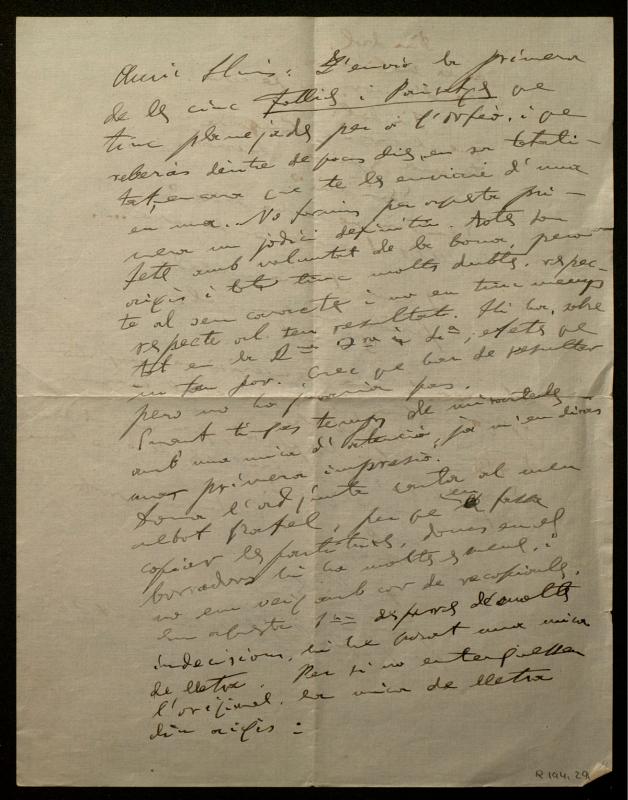 Amic Lluis: T'envio la primera
de les cinc Follies i Paisatges que
tinc planejades per a l'Orfeó, i que
rebràs dintre de pocs dies, en sa totali-
tat, encara que te les enviaré d'una
en una. No formis per aquesta pri-
mera un judici definitiu. Totes son
fetes amb voluntat de la bona, pero
aixis i tot tinc molts dubtes, respec-
te al seu caracte i no en tinc menys
respecte al seu resultat. Hi ha, sobre
tot en la 2ª 3ª i 4ª, efets que
m fan por. Crec que han de resultar
pero no ho juraria pas.
Quant tingas temps de mirartels
amb una mica d'atenció, ja m'en diras
una primera impresió.
Dona l'adjunta carta al meu
nebot Rafel, per que en fassa
copiar les partitures, doncs en el
borradors hi ha moltes esmenes, i
no em veig amb cor de recopiarles.
En aquesta 1ª despres de molts
indecisions, hi he posat una mica
de lletra. Per si no entenguessen
l'original, la mica de lletra
diu aixis:
R 194.29